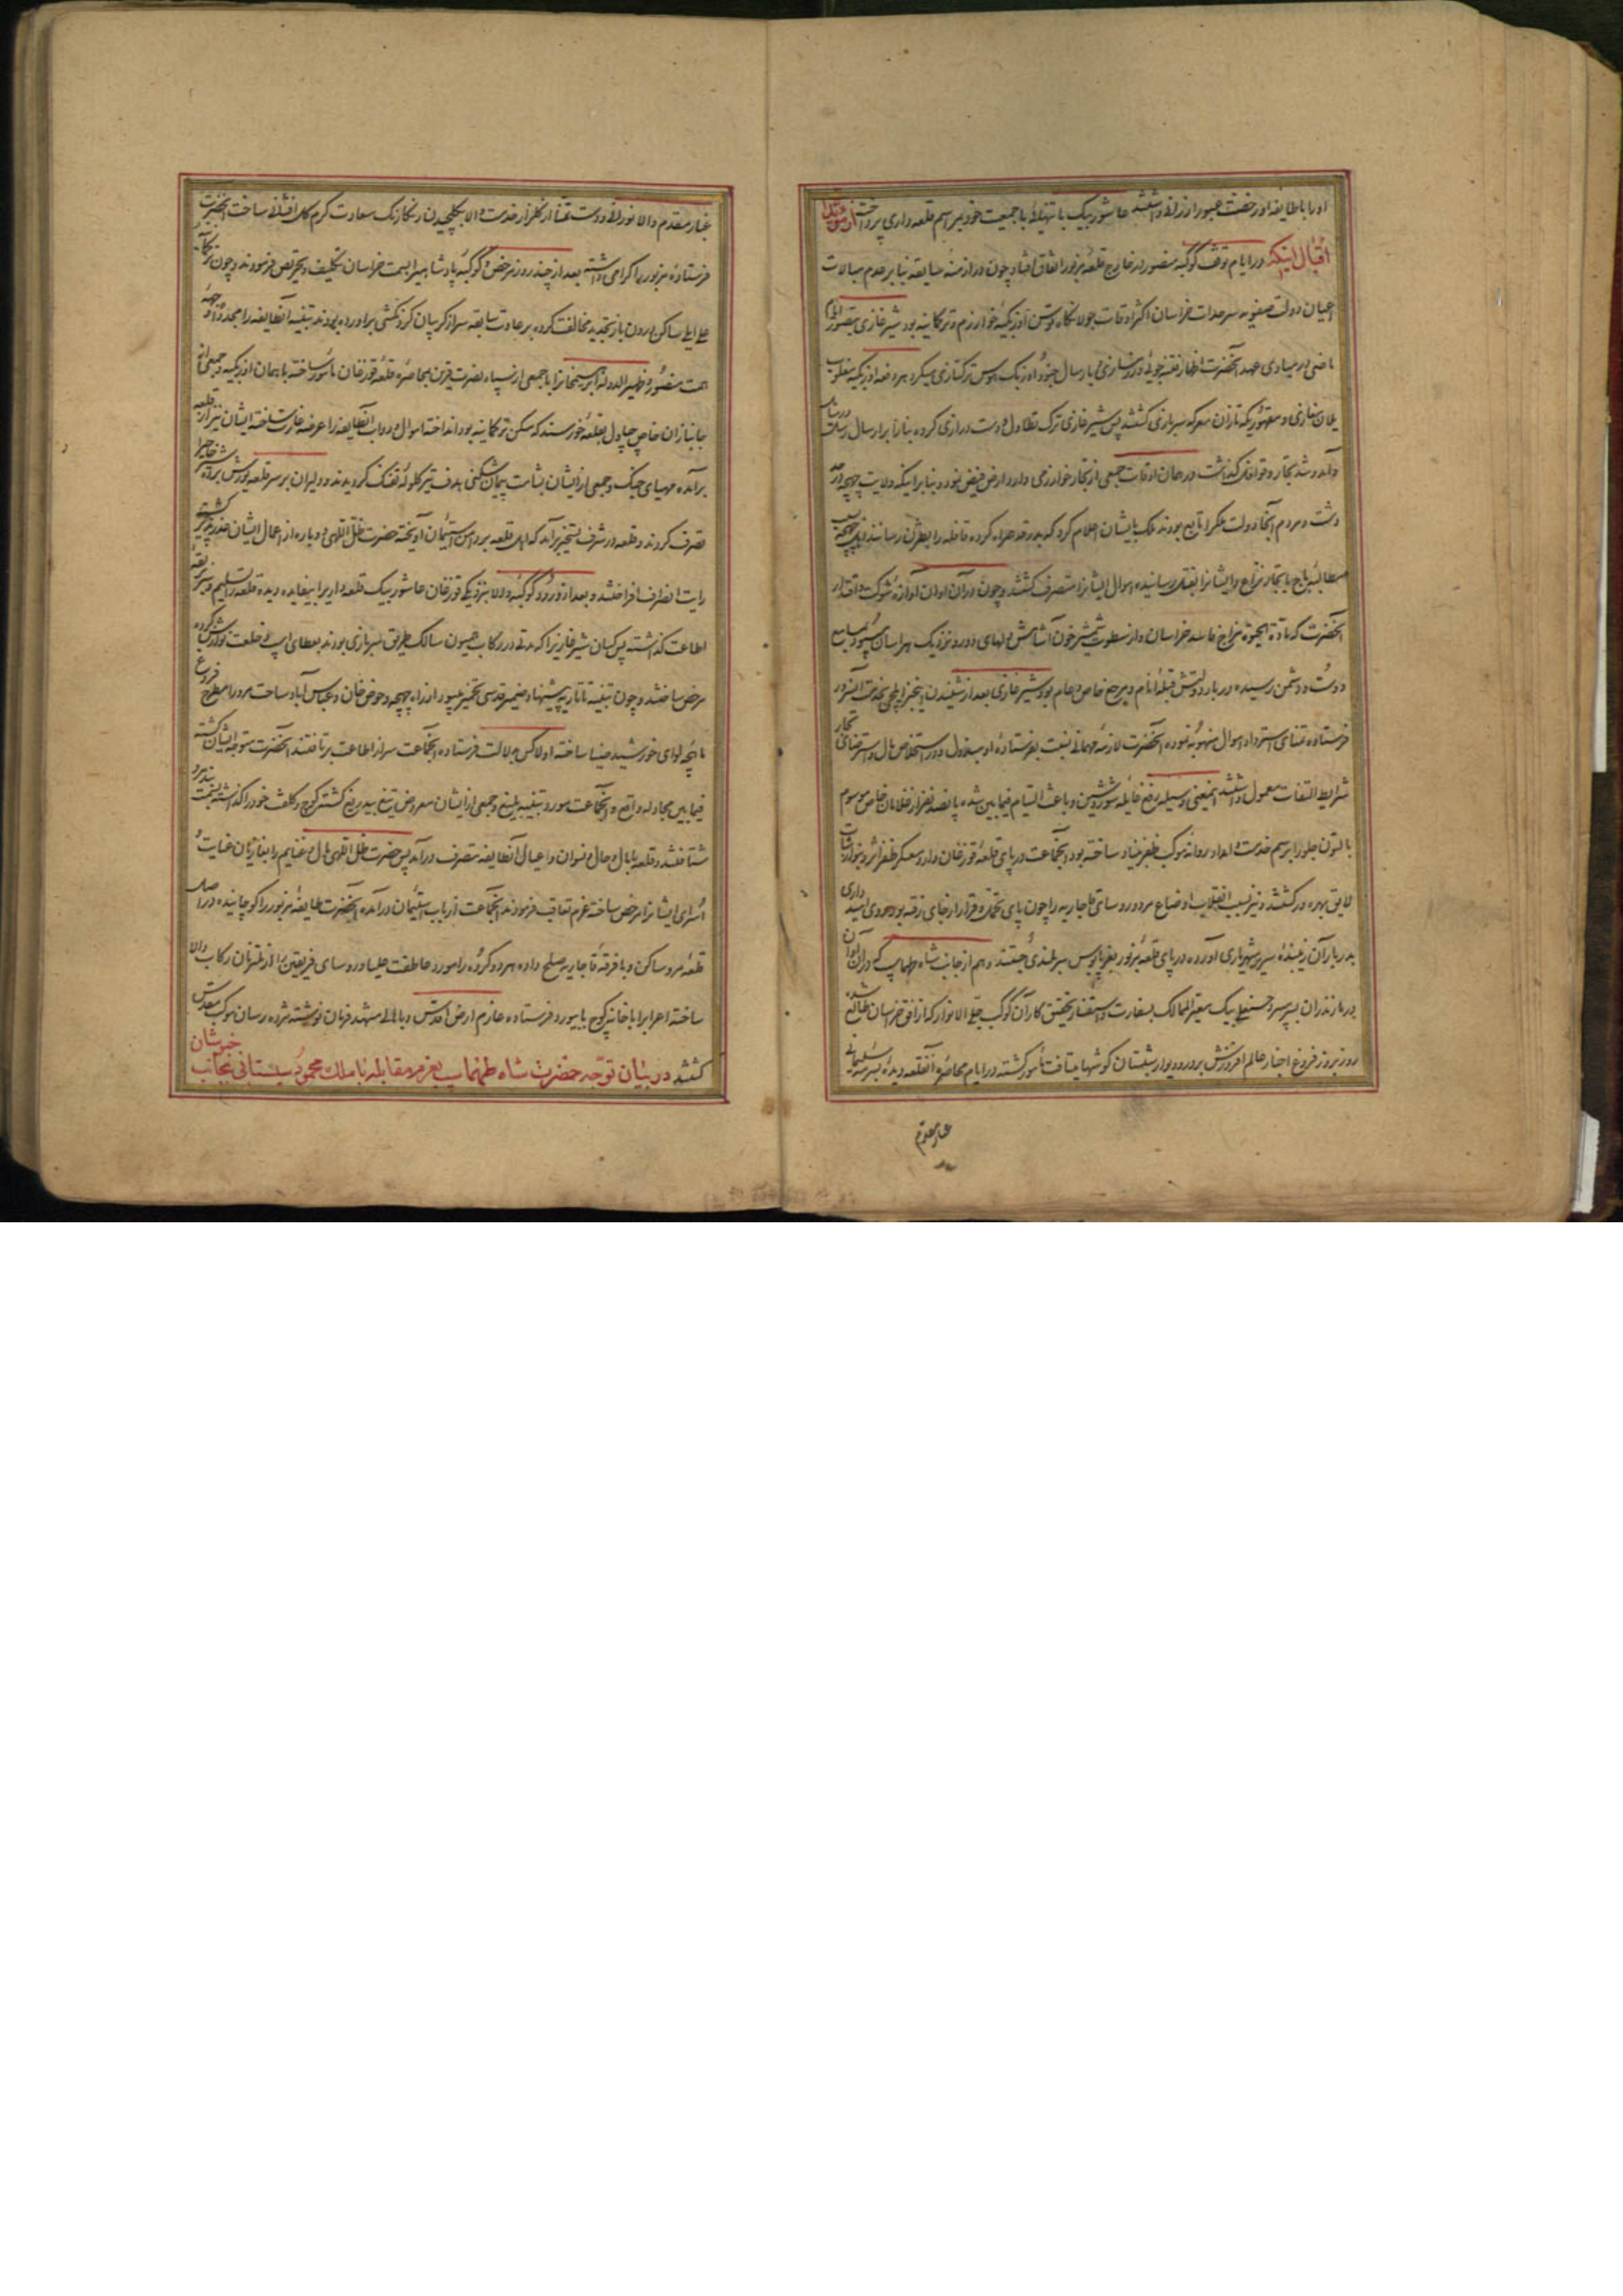 او را با طایفه او رخصت عبور ارزانی داشتند عاشور بیک با تتمه با جمعیت خود بمراسم قلعه داری پرداخت
اقبال اینکه در ایام توقف کوکبه منصور در خارج قلعه مزبور اتفاق افتاد چون در ازمنه سابقه بنا بر عدم مبالات
اعیان دولت صفویه سرحدات خراسان اکثر اوقات جولانگاه توسن اوزبکیه خوارزم و ترکمانیه بود شیرغازی بتصور
ماضی در مبادی عهد آنحضرت اظهار فتنه جوئی و ارسال جنود اوزبک هوس ترکتازی میکرد هر دفعه اوزبکیه مغلوب
یلان غازی و مقهور یکه تازان معرکه سربازی کشتند پس شیرغازی ترک تطاول و دست درازی کرده بنا را بر ارسال رسل
و آمد و شد تجار و قوافل گذاشت در همان اوقات جمعی از تجار خوارزمی وارد ارض فیض نمود و بنا بر اینکه ولایت چهچهه در
دشت و مردم آنجا دولت ملک را تابع بودند ملک بایشان اعلام کرد که بدرقه همراه کرده قافله را بطژن رسانند
مطالبه باج با تجار نزاع و ایشانرا بقتل رسانیده اموال ایشانرا متصرف کشتند و چون در آن اوان آوازه شوکت و اقتدار
آنحضرت که ماده مزاج فاسد خراسان و از سطوت شمشیر خون آشامش دلهای دور و نزدیک هراسان
دوست و دشمن رسیده دربار دولتش قبله انام و مرجع خاص و عام بود شیرغازی بعد از شنیدن اینخبر ایلچی بخدمت آنسرور
فرستاده تمنای استرداد اموال منهوبه نموده آنحضرت لازمه مهمانی نسبت بفرستاده او مبذول و در استخلاص مال و استرضای تجار
شرایط التفات معمول داشتند اینمعنی وسیله رفع غایله شور و شین و باعث التیام فیمابین شده پانصد نفر از غلامان خاص موسوم
بالتون جلو را برسم خدمت و امداد روانه موکب ظفر بنیاد ساخته بود آنجماعت در پای قلعه قوزغان وارد معسکر ظفر اثر و بنوازشات
لایق بهره ور کشتند و نیز بسبب انقلاب اوضاع مرو رؤسای قاجاریه را چون پای تحمل و قرار از جای رفته بود روی امیدواری
بدربار آن زیبنده سریر شهریاری آورده در پای قلعه مزبور بعز پابوس سربلندی جستند و هم از جانب شاه طهماسب که در آن اوان
در مازندران بسر میبرد حسنعلی بیک معیر الممالک بسفارت و استفسار تحقیق کار آن کوکب جلی الانوار که از افق خراسان طالع شده
روز بروز فروغ اخبار عالم افروزش بر در و دیوار شبستان گوشها میتافت مأمور کشته در ایام محاصره آنقلعه دیده بسرمه سلیمانی
غبار مقدم
غبار مقدم والا نورانی و دست تمنا از گلزار خدمت والا بگلچیدن رنگارنگ سعادت کرم گل افشانی ساخت آنحضرت
فرستاده مزبور را گرامی داشته بعد از چند روز مرخص و کوکبه پادشاهی را بسمت خراسان تکلیف و تحریص فرمودند و چون ترکمانیه
علی ایلی ساکن درون باز تجدید مخالفت کرده بر عادت سابقه سر از گریبان گردنکشی برآورده بودند تنبیه آنطایفه را مجددا وجهه
همت منصور و ظهیر الدوله ابراهیمخانرا با جمعی از سپاه نصرت قرین بمحاصره قلعه قوزغان مأمور ساخته با همان اوزبکیه و جمعی از
جانبازان خاص چپاول بقلعه خورسند که مسکن ترکمانیه بود انداخته اموال و دواب آنطایفه را عرضه غارت ساخته ایشان نیز از قلعه
برآمده مهیای جنگ و جمعی از ایشان بشامت پیمان شکنی هدف تیر گلوله تفنگ گردیدند و دلیران بر سر قلعه یورش برده
تصرف کردند و قلعه در شرف تسخیر برآمد که اهل قلعه بر دامن استیمان آویخته حضرت ظل اللهی دوباره از اعمال ایشان عذرپذیر گشته
رایت انصراف افراختند و بعد از ورود کوکبه والا بنزدیکی قوزغان عاشور بیک قلعه داری را بیفایده دیده قلعه را تسلیم و سر بربقه
اطاعت گذاشته پس کسان شیرغازیرا که مدتی در رکاب همیون سالک طریق سربازی بودند بعطای اسب و خلعت نوازش کرده
مرخص ساختند و چون تنبیه تاتاریه پیشنهاد ضمیر قدسی تخمیر میبود از راه چهچهه و حوض خان و عباس آباد ساحت مرو را مطرح فروغ
ماهچه لوای خورشید ضیا ساخته اولا کس بدلالت فرستاده آنجماعت سر از اطاعت برتافتند آنحضرت متوجه ایشان کشته
فیمابین مجادله واقع و آنجماعت مورد تنبیه بلیغ و جمعی از ایشان معروض تیغ بیدریغ کشتند کوچ و کلفت خود را گذاشته بسمت
شتافتند و قلعه با مال و حال و نسوان و اعیال آنطایفه بتصرف درآمد پس حضرت ظل اللهی مال و غنایم را بغازیان عنایت و
اسرای ایشانرا مرخص ساخته عزم تعاقب فرمودند آنجماعت از باب استیمان درآمده آنحضرت طایفه مزبور را کوچانیده در اصل
قلعه مرو ساکن و با فرقه قاجاریه صلح داده هر دو گروه را مورد عاطفت جلیله و رؤسای فریقین را از ملتزمان رکاب والا
ساخته اعراب را با خانه کوچ بابیورد فرستاده عازم ارض اقدس و باهالی مشهد فرمان نوشته مژده رسان موکب مقدس
کشتند در بیان توجه حضرت شاه طهماسب بعزم مقابله با ملک محمود سیستانی بجانب خبوشان